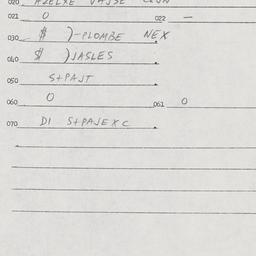 020
021 0 022 —
030 $ )-PLOMBE NEX
040 $ )JASLES
050 S+PAJT
060 0 061 0
070 DI S+PAJEXC